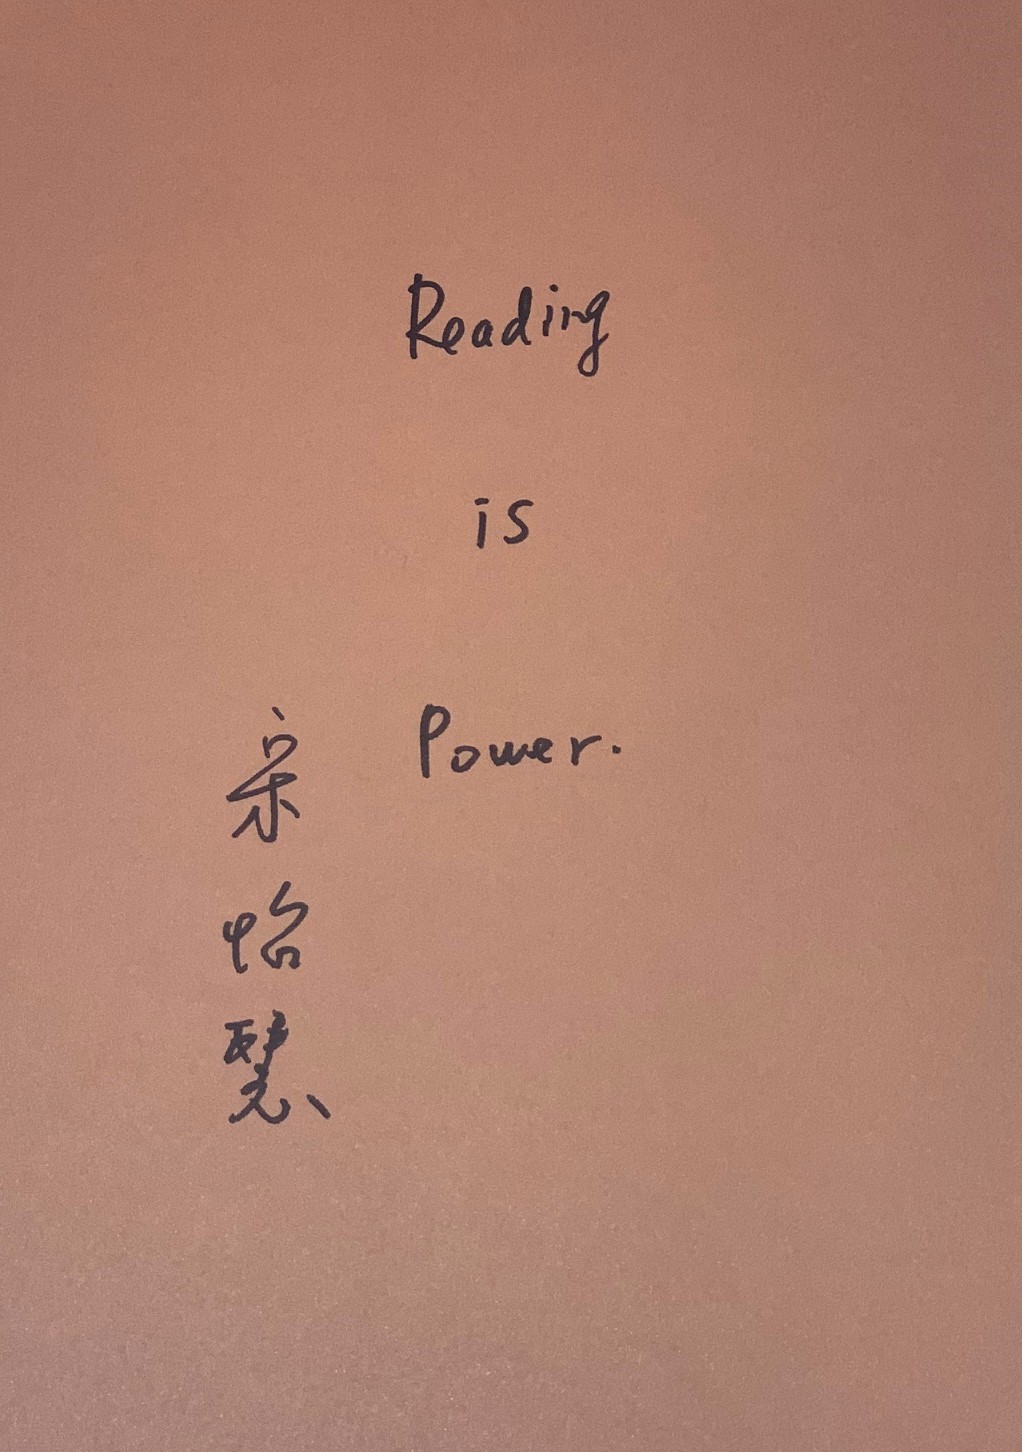 Reading
is
Power.
宋怡慧